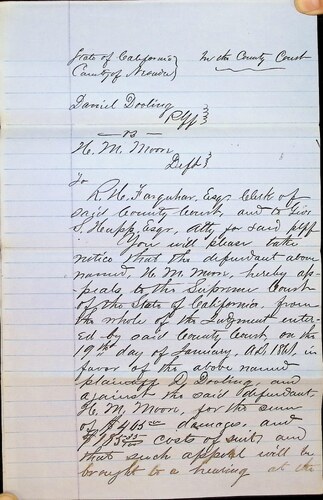 State of California } In the County Court
County of Nevada }
Daniel Dooling
Plff }
— vs —
H. M. Moon
Deft }
To
R. H. Farquhar, Esq. Clerk of
said County Court, and to
S. Heupp, Esq, Atty for said plff
You will please take
notice that the defendant above
named, H. M. Moon, hereby ap-
peals to the Supreme Court
of the State of California, from
the whole of the Judgment enter-
ed by said County Court, on the
19th day of January, A.D. 1861, in
favor of the above named
plaintiff D. Dooling, and
against the said defendant
H. M. Moon, for the sum
of $ 465 damages, and
costs of suit, and
that such appeal will be
brought to a hearing at the